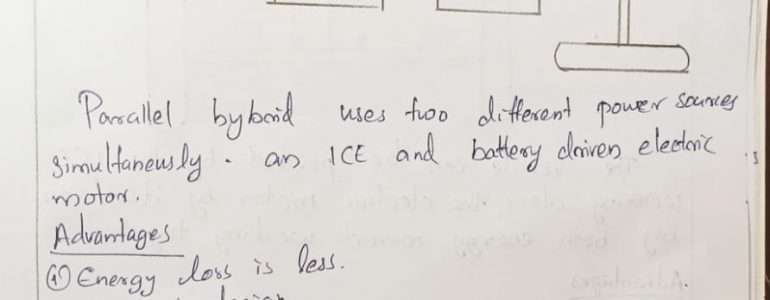 Parallel hybrid uses two different power sources
simultaneusly. an ICE and battery driven electric
motor.
Advantages
(1) Energy loss is less.
design